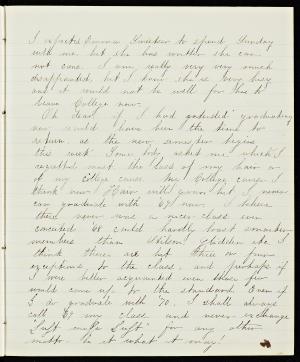 I expected Emma to spend Sunday
with me but she has written she can
not come. I am really very very much
disappointed, but I know she is very busy
and it would not be well for her to
leave College now.
Oh dear, if I had intended graduating
now would have been the time to
return, as the new semester begins
this week. Some body asked me which I
regretted most the loss of my hair or
of my college course. My College course I
think now. Hair will grow but I never
can graduate with 69 now. I believe
there never was a nicer class even
conceited 68 could hardly boast smarter
members than etc. I
think there are but three or four
exceptions to the class, and perhaps if
I were better acquainted even these few
would come up to the standard. Even if
I do graduate with '70, I shall always
call 69 my class and never exchange
for any other
motto be it what it may!